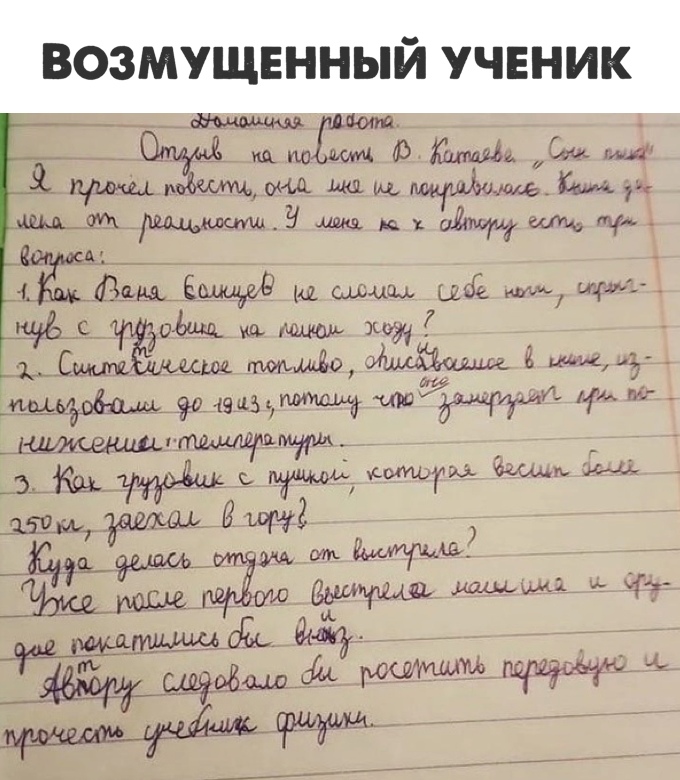 ВОЗМУЩЕННЫЙ УЧЕНИК
Домашняя работа.
Отзыв на повесть В. Катаева „Сын полка"
Я прочёл повесть, она мне не понравилась. Книга да-
лека от реальности. У меня к автору есть три
вопроса:
1. Как Ваня Солнцев не сломал себе ноги, спрыг-
нув с грузовика на полном ходу?
2. Синтетическое топливо, описываемое в книге, ис-
пользовали до 1943г, потому что оно замерзает при по-
нижении температуры.
3. Как грузовик с пушкой, которая весит более
250кг, заехал в гору?
Куда делась отдача от выстрела?
Уже после первого выстрела машина и ору-
дие покатились бы вниз.
Автору следовало бы посетить передовую и
прочесть учебник физики.